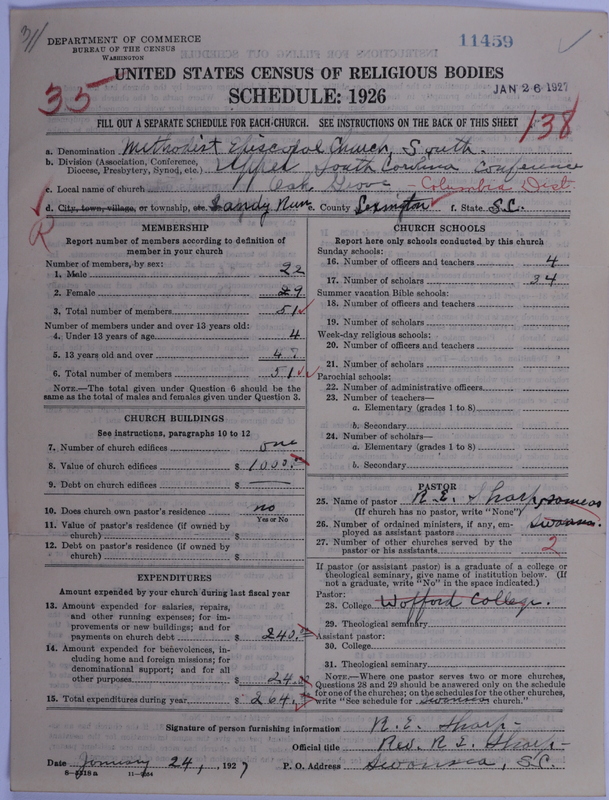 311
DEPARTMENT OF COMMERCE
BUREAU OF THE CENSUS
WASHINGTON
11459
UNITED STATES CENSUS OF RELIGIOUS BODIES
SCHEDULE: 1926
JAN 26 1927
35
138
FILL OUT A SEPARATE SCHEDULE FOR EACH CHURCH. SEE INSTRUCTIONS ON THE BACK OF THIS SHEET
a. Denomination Methodist Episcopal Church, South.
b. Division (Association, Conference, Diocese, Presbytery, Synod, etc.) Upper South Carolina Conference
c. Local name of church Oak Grove - Columbia Dist.
d. City, town, village, or township, etc. Sandy Run e. County Lexington f. State S.C.
R
MEMBERSHIP
Report number of members according to definition of
member in your church
Number of members, by sex:
1. Male 22
2. Female 29
3. Total number of members 51
Number of members under and over 13 years old:
4. Under 13 years of age 4
5. 13 years old and over
6. Total number of members 51
NOTE.—The total given under Question 6 should be the
same as the total of males and females given under Question 3.
CHURCH BUILDINGS
See instructions, paragraphs 10 to 12
7. Number of church edifices one
8. Value of church edifices $ 1000.
9. Debt on church edifices $
10. Does church own pastor's residence? no
Yes or No
11. Value of pastor's residence (if owned by
church) $
12. Debt on pastor's residence (if owned by
church) $
EXPENDITURES
Amount expended by your church during last fiscal year
13. Amount expended for salaries, repairs,
and other running expenses; for im-
provements or new buildings; and for
payments on church debt $ 240.
14. Amount expended for benevolences, in-
cluding home and foreign missions; for
denominational support; and for all
other purposes $ 24.
15. Total expenditures during year $ 264.
CHURCH SCHOOLS
Report here only schools conducted by this church
Sunday schools:
16. Number of officers and teachers 4
17. Number of scholars 34
Summer vacation Bible schools:
18. Number of officers and teachers
19. Number of scholars
Week-day religious schools:
20. Number of officers and teachers
21. Number of scholars
Parochial schools:
22. Number of administrative officers
23. Number of teachers—
a. Elementary (grades 1 to 8)
b. Secondary
24. Number of scholars—
a. Elementary (grades 1 to 8)
b. Secondary
PASTOR
25. Name of pastor R. E. Sharp
(If church has no pastor, write "None")
26. Number of ordained ministers, if any, em-
ployed as assistant pastors Swansea.
27. Number of other churches served by the
pastor or his assistants 2
If pastor (or assistant pastor) is a graduate of a college or
theological seminary, give name of institution below. (If
not a graduate, write "No" in the space indicated.)
Pastor:
28. College Wofford College.
29. Theological seminary
Assistant pastor:
30. College
31. Theological seminary
NOTE.—Where one pastor serves two or more churches,
Questions 28 and 29 should be answered only on the schedule
for one of the churches; on the schedules for the other churches,
write "See schedule for Swansea church."
Signature of person furnishing information R. E. Sharp-
Official title Rev. R. E. Sharp-
Date January 24, 1927 P. O. Address Swansea, S.C.
8—8218a 11—9264